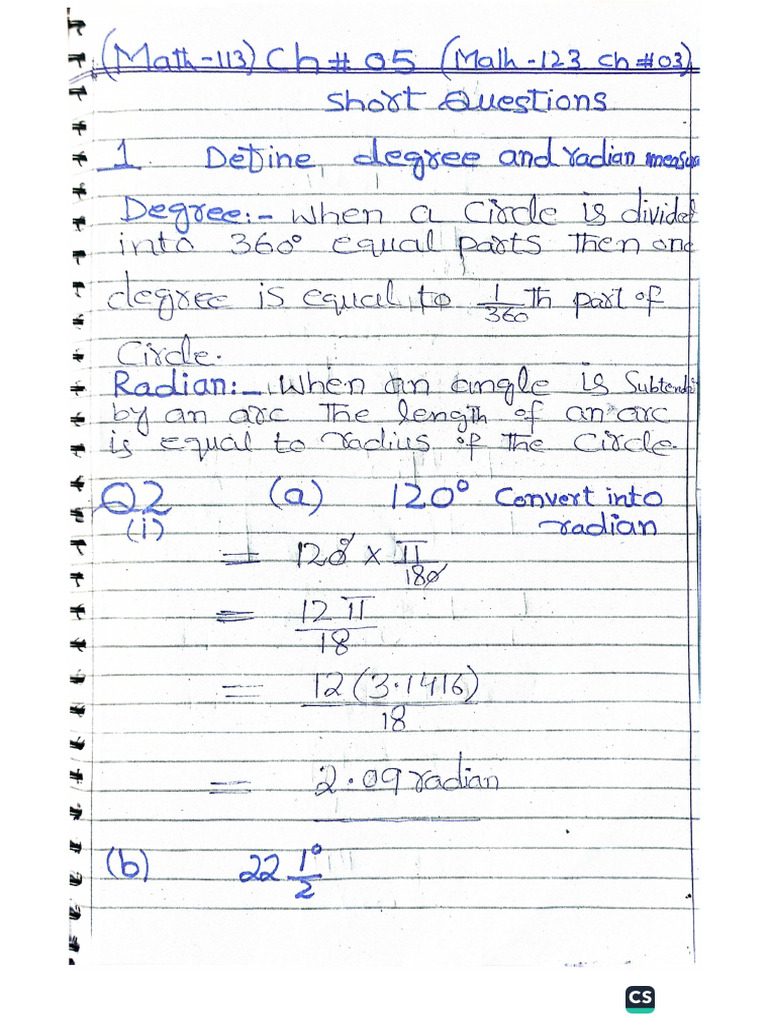 (Math-113) Ch # 05 (Math-123 Ch #03)
Short Questions
1 Define degree and radian measu
Degree:- When a Circle is divided
into 360° equal parts Then one
degree is equal to 1/360 Th part of
Circle.
Radian:- When an angle is Subtend
by an arc The length of an arc
is equal to radius of The Circle.
Q2 (a) 120° Convert into
(i) radian
= 120° × π/180
= 12 π/18
= 12(3.1416)/18
= 2.09 radian
(b) 22 1/2°
CS